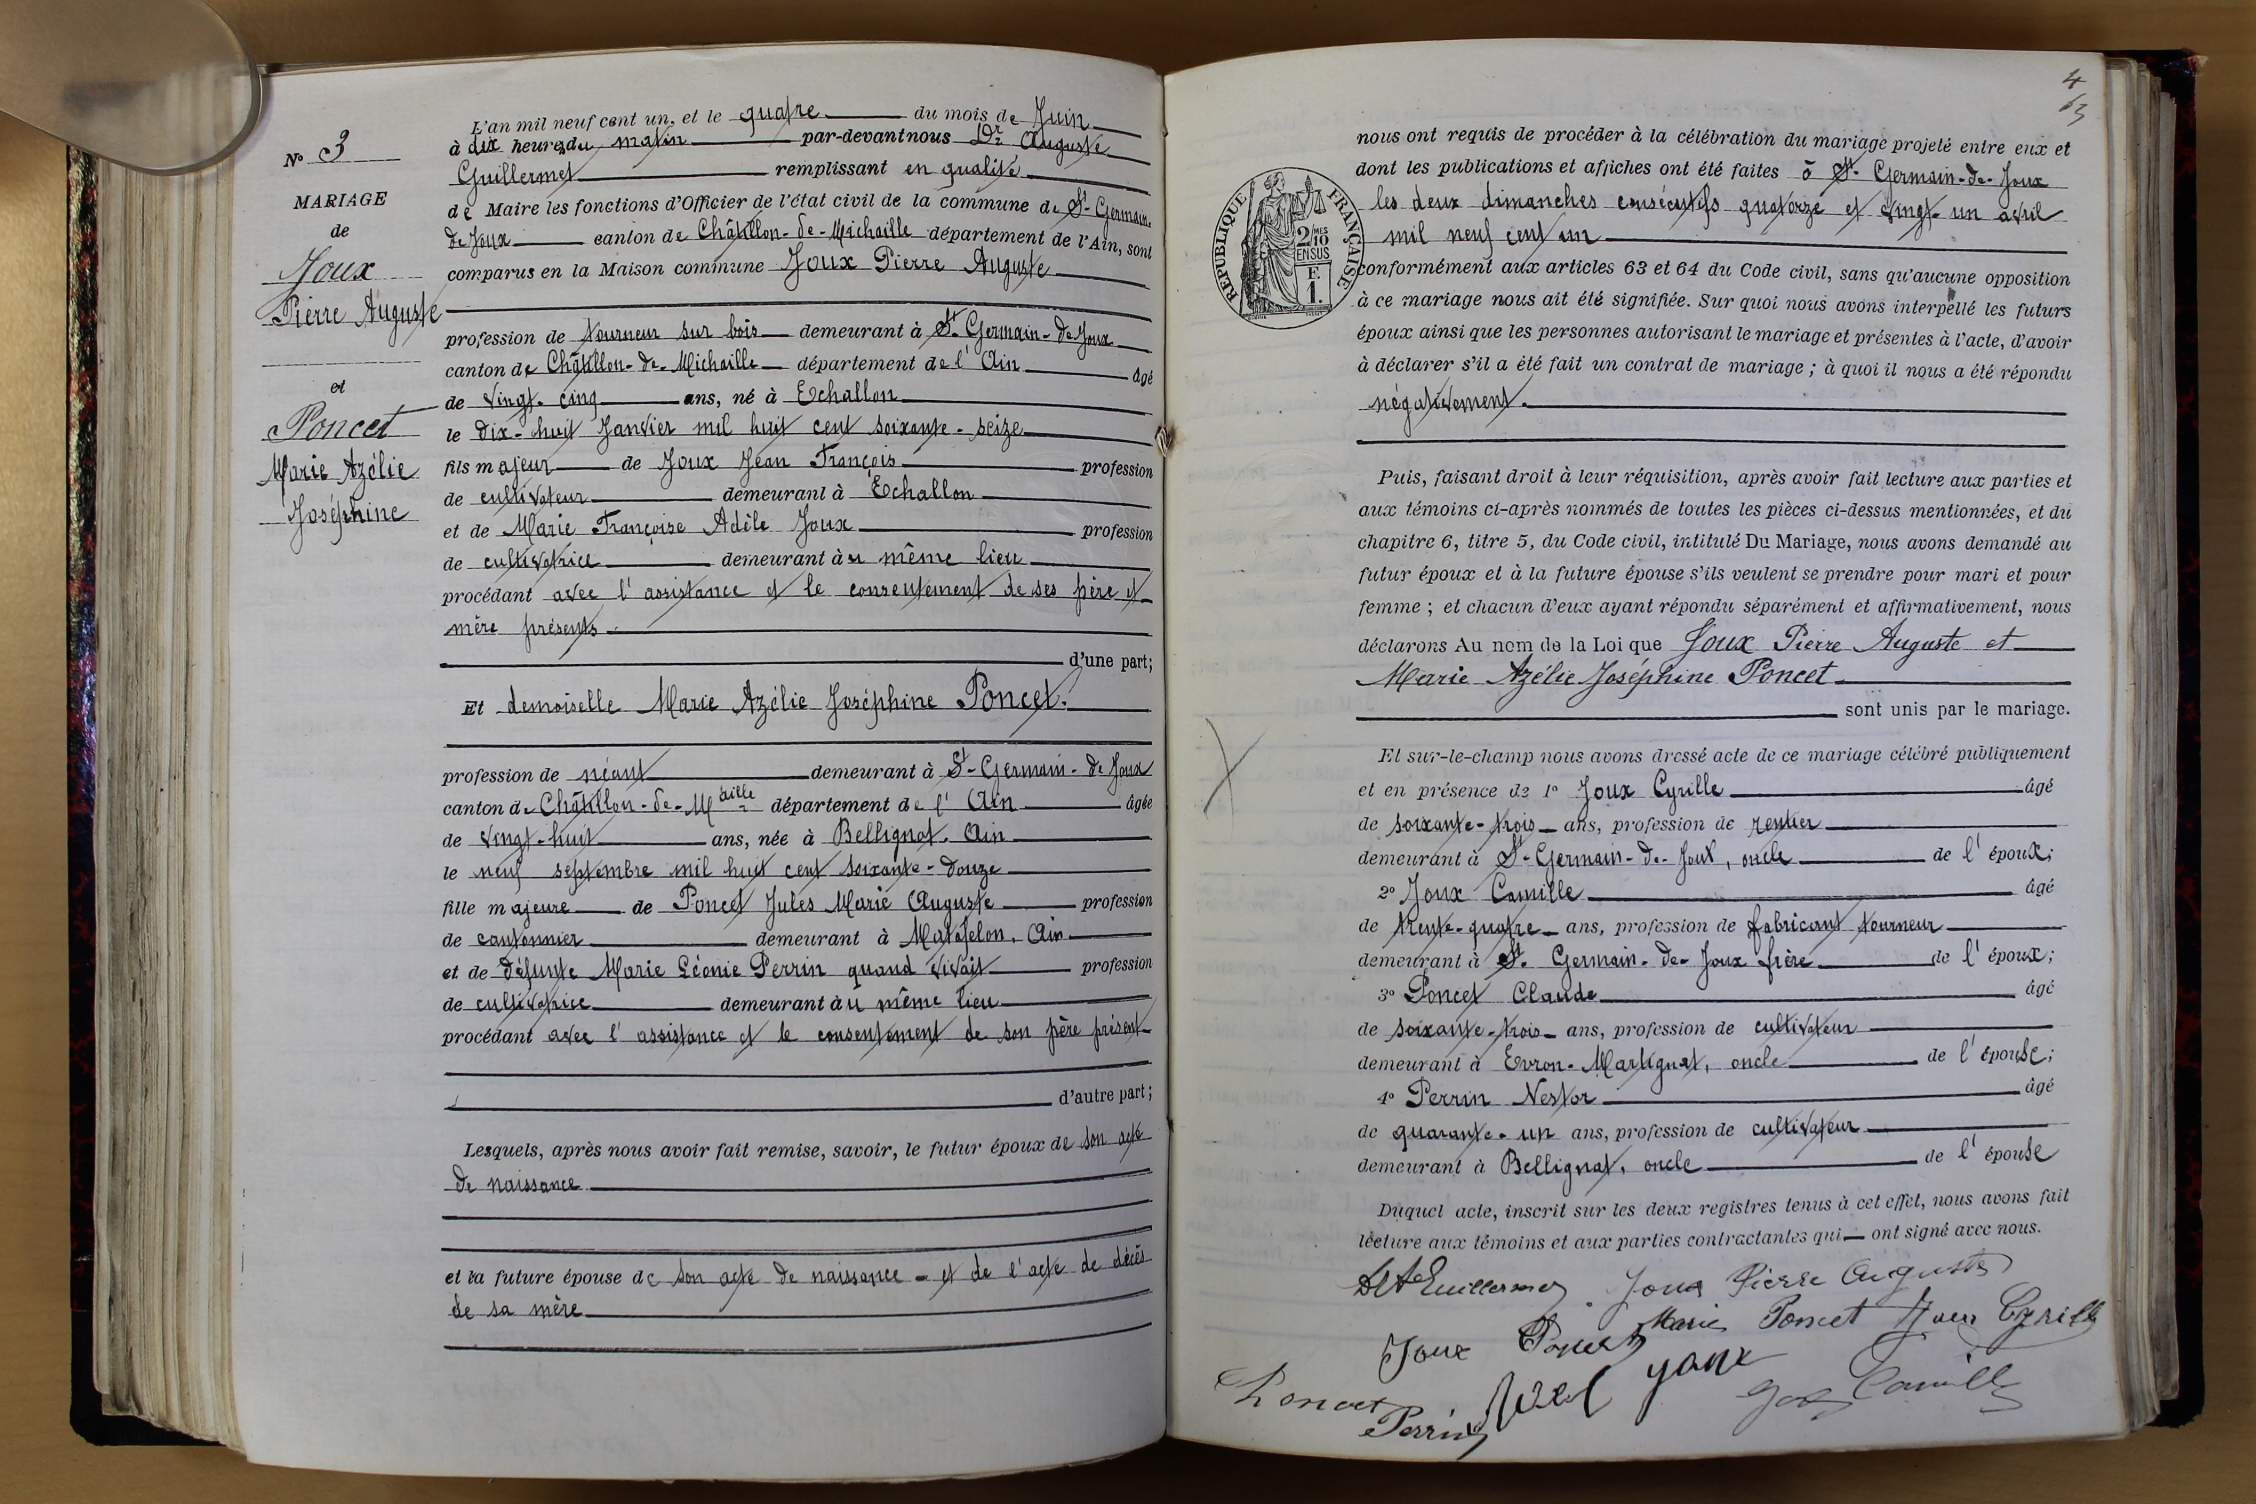 N° 3
MARIAGE
de
Joux
Pierre Auguste
et
Poncet
Marie Azélie
Joséphine
L'an mil neuf cent un, et le quatre du mois de Juin
à dix heures du matin par-devant nous Dr Auguste
Guillermet remplissant en qualité
de Maire les fonctions d'Officier de l'état civil de la commune de St-Germain-
de Joux canton de Châtillon-de-Michaille département de l'Ain, sont
comparus en la Maison commune Joux Pierre Auguste
profession de tourneur sur bois demeurant à St-Germain-de Joux
canton de Châtillon-de-Michaille département de l'Ain âgé
de vingt-cinq ans, né à Echallon
le dix-huit Janvier mil huit cent soixante-seize
fils majeur de Joux Jean François profession
de cultivateur demeurant à Echallon
et de Marie Françoise Adèle Joux profession
de cultivatrice demeurant àu même lieu
procédant avec l'assistance et le consentement de ses père et
mère présents.
d'une part;
Et demoiselle Marie Azélie Joséphine Poncet.
profession de néant demeurant à St-Germain-de Joux
canton de Châtillon-de-Maille département de l'Ain âgée
de vingt-huit ans, née à Bellignat. Ain
le neuf septembre mil huit cent soixante-douze
fille majeure de Poncet Jules Marie Auguste profession
de cantonnier demeurant à Matafelon. Ain
et de défunte Marie Léonie Perrin quand vivait profession
de cultivatrice demeurant àu même lieu
procédant avec l'assistance et le consentement de son père présent
d'autre part;
Lesquels, après nous avoir fait remise, savoir, le futur époux de son acte
de naissance
et la future épouse de son acte de naissance - et de l'acte de décès
de sa mère
4
63
RÉPUBLIQUE FRANÇAISE
2/10 MES
EN SUS
F.
1.
nous ont requis de procéder à la célébration du mariage projeté entre eux et
dont les publications et affiches ont été faites à St-Germain-de-Joux
les deux dimanches consécutifs quatorze et vingt-un avril
mil neuf cent un
conformément aux articles 63 et 64 du Code civil, sans qu'aucune opposition
à ce mariage nous ait été signifiée. Sur quoi nous avons interpellé les futurs
époux ainsi que les personnes autorisant le mariage et présentes à l'acte, d'avoir
à déclarer s'il a été fait un contrat de mariage ; à quoi il nous a été répondu
négativement.
Puis, faisant droit à leur réquisition, après avoir fait lecture aux parties et
aux témoins ci-après nommés de toutes les pièces ci-dessus mentionnées, et du
chapitre 6, titre 5, du Code civil, intitulé Du Mariage, nous avons demandé au
futur époux et à la future épouse s'ils veulent se prendre pour mari et pour
femme ; et chacun d'eux ayant répondu séparément et affirmativement, nous
déclarons Au nom de la Loi que Joux Pierre Auguste et
Marie Azélie Joséphine Poncet
sont unis par le mariage.
Et sur-le-champ nous avons dressé acte de ce mariage célébré publiquement
et en présence de 1° Joux Cyrille âgé
de soixante-trois ans, profession de rentier
demeurant à St-Germain-de-Joux, oncle de l'époux;
2° Joux Camille âgé
de trente-quatre ans, profession de fabricant tourneur
demeurant à St-Germain-de-Joux frère de l'époux;
3° Poncet Claude âgé
de soixante-trois ans, profession de cultivateur
demeurant à Evron-Martignat, oncle de l'épouse;
4° Perrin Nestor âgé
de quarante-un ans, profession de cultivateur
demeurant à Bellignat, oncle de l'épouse
Duquel acte, inscrit sur les deux registres tenus à cet effet, nous avons fait
lecture aux témoins et aux parties contractantes qui ont signé avec nous.
Guillermet Joux Pierre Auguste
Joux Poncet Marie Poncet Joux Cyrille
Poncet Joux Camille
Perrin